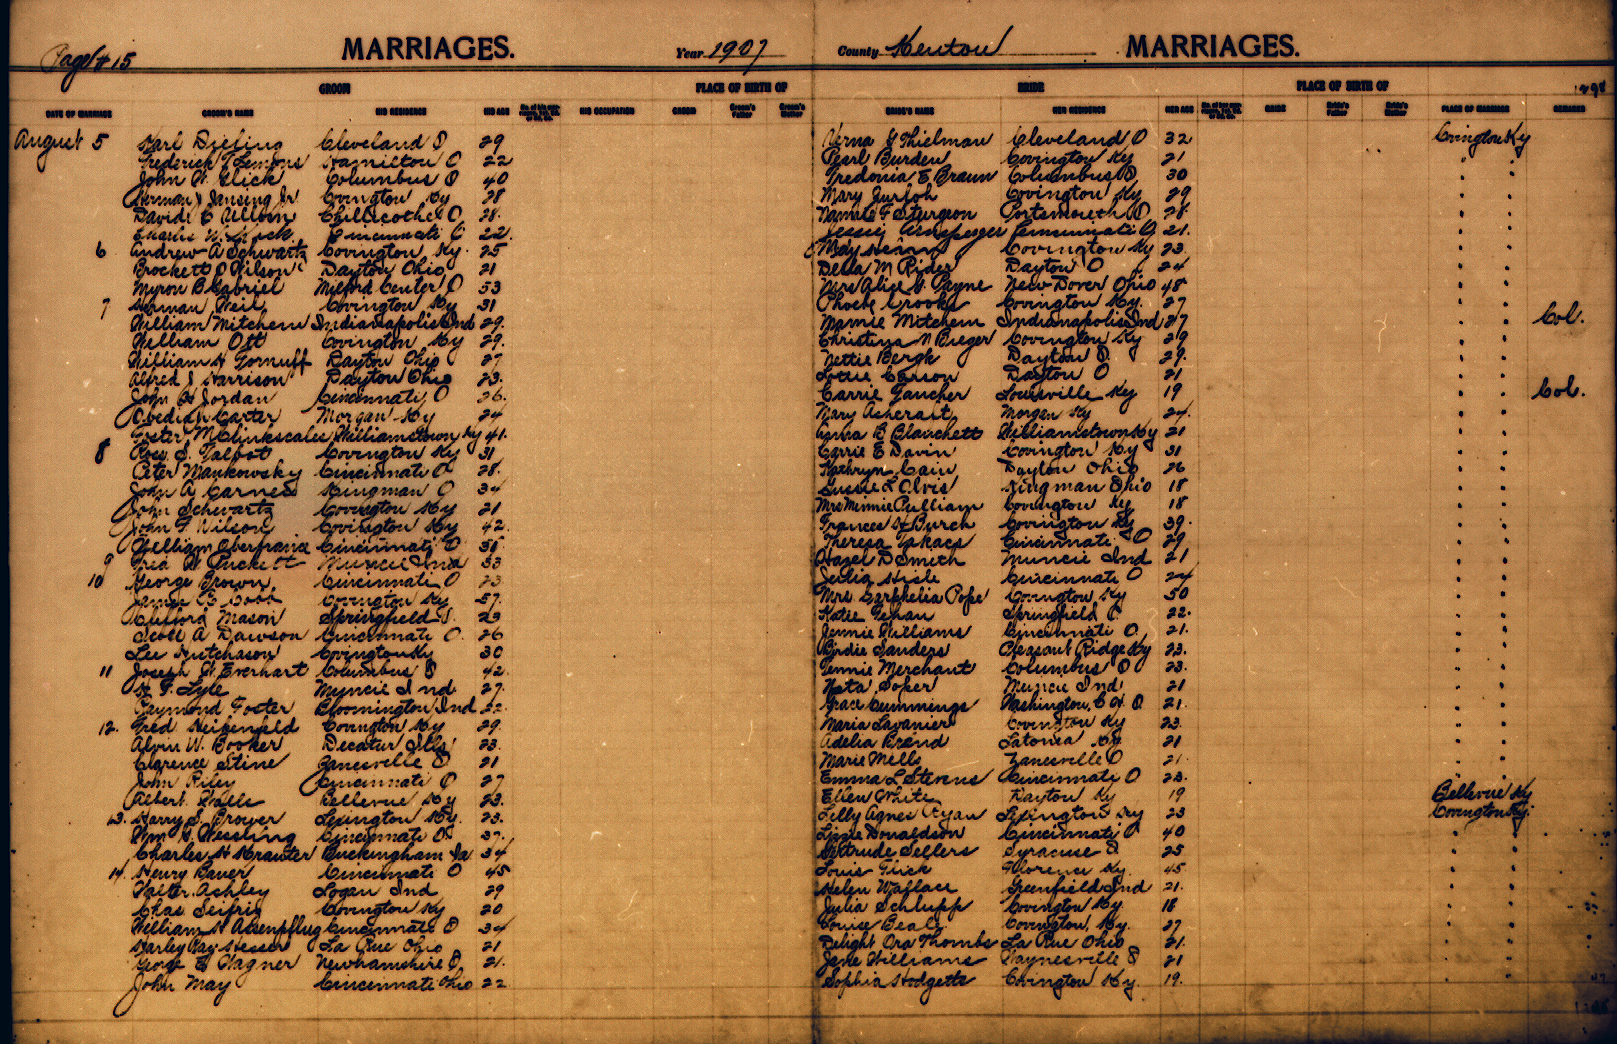 Page # 15 MARRIAGES. Year 1907 County Kenton MARRIAGES.
GROOM PLACE OF BIRTH OF BRIDE PLACE OF BIRTH OF
DATE OF MARRIAGE GROOM'S NAME HIS RESIDENCE HIS AGE HIS OCCUPATION GROOM Groom's Father Groom's Mother BRIDE'S NAME HER RESIDENCE HER AGE BRIDE Bride's Father Bride's Mother PLACE OF MARRIAGE REMARKS
August 5 Karl Cleveland O 29 Verna G Thielman Cleveland O 32 Covington Ky
Frederick T Lemons Hamilton O 22 Pearl Burden Covington Ky 21 " "
John W. Glick Columbus O 40 Fredonia E Braun Columbus O. 30 " "
Herman J Jansing Jr Covington Ky 28 Mary Covington Ky 29 " "
David C Ullom Chillicothe O. 28. Mamie F Sturgeon Portsmouth O. 28. " "
Charles W. Cincinnati O 22. Jessie Cincinnati O. 21. " "
6 Andrew A Schwartz Covington Ky. 25 May Covington Ky 23. " "
Brockett O Wilson Dayton Ohio 21 Della M Rider Dayton O 24 " "
Myron B Gabriel Milford Center O 53 Mrs Alice H. Payne New Dover Ohio 48 " "
7 Herman Weil Covington Ky 31 Phoebe Crooks Covington Ky. 27 " "
William Mitchem Indianapolis Ind 29. Mamie Mitchem Indianapolis Ind 27 " " Col.
William Ott Covington Ky 29. Christina N Covington Ky 29 " "
William H Dayton Ohio 27 Nettie Bergk Dayton O. 29. " "
Alfred J Harrison Dayton Ohio 23. Lottie Carson Dayton O 21 " "
John H Jordan Cincinnati, O 26. Carrie Gaucher Louisville Ky 19 " " Col.
Obediah Carter Morgan Ky 24 Mary Ashcraft Morgan Ky 24. " "
Foster M Clinkscales Williamstown Ky 41. Anna B Blanchett Williamstown Ky 21 " "
8 Ross S. Talbot Covington Ky 31 Carrie E Davin Covington Ky 31 " "
Peter Mankowsky Cincinnati O 28. Kathryn Cain Dayton Ohio 26 " "
John A Carnes Kingman O 34 Gussie L Elvis Kingman Ohio 18 " "
John Schwartz Covington Ky 21 Mrs Minnie Pulliam Covington Ky 18 " "
John F Wilson Covington Ky 42. Frances H Burch Covington Ky 39. " "
William Cincinnati O. Theresa Takacs Cincinnati O 29 " "
9 Fred W Puckett Muncie Ind 33 Hazel D Smith Muncie Ind 21 " "
10 George Brown Cincinnati O 23 Julia Hisle Cincinnati O 24 " "
James B Cobb Covington Ky 57. Mrs Pope Covington Ky 50 " "
Clifford Mason Springfield O. 23 Katie Gehan Springfield O. 22. " "
Scott A Dawson Cincinnati O. 26 Jennie Williams Cincinnati O. 21. " "
Lee Hutchason Covington Ky 30 Birdie Sanders Pleasant Ridge Ky 23. " "
11 Joseph W. Everhart Columbus O 42. Jennie Merchant Columbus O 23. " "
H. F. Lyle Muncie Ind 27. Neta Soper Muncie Ind 21 " "
Raymond Foster Bloomington Ind 22. Grace Cummings Washington, C H O 21. " "
12. Fred Covington Ky 29. Maria Lavanier Covington Ky 23. " "
Alvin W. Booker Decatur Ills 23. Adelia Brend Latonia Ky 21 " "
Clarence Stine Zanesville O 21 Marie Mells Zanesville O 21. " "
John Riley Cincinnati O 27 Emma L Stevens Cincinnati O 23. " "
Albert Walls Bellevue Ky 23. Ellen White Dayton Ky 19 Bellevue Ky
13. Harry S. Brower Lexington Ky. 23. Lilly Agnes Ryan Lexington Ky 23 Covington Ky.
Wm G. Wessling Cincinnati O. 37. Lizzie Donaldson Cincinnati O 40 " "
Charles H Krauter Buckingham Ia 34 Gertrude Sellers Syracuse O 25 " "
14. Henry Bauer Cincinnati O 45 Louis Flick Florence Ky. 45 " "
Walter Achley Logan Ind 29 Helen Wallace Greenfield Ind 21. " "
Chas Seifrig Covington Ky 20 Julia Schlupp Covington Ky. 18 " "
William H Atsenpflug Cincinnati O 34 Louise Bealy Covington, Ky. 27 " "
Harley Ray La Rue Ohio 21 Delight Ora Thombs La Rue Ohio 21. " "
George E Wagner Newhamshire O. 21. Jane Williams Waynesville O 21 " "
John May Cincinnati Ohio 22 Sophia Hodgetts Covington Ky. 19. " "